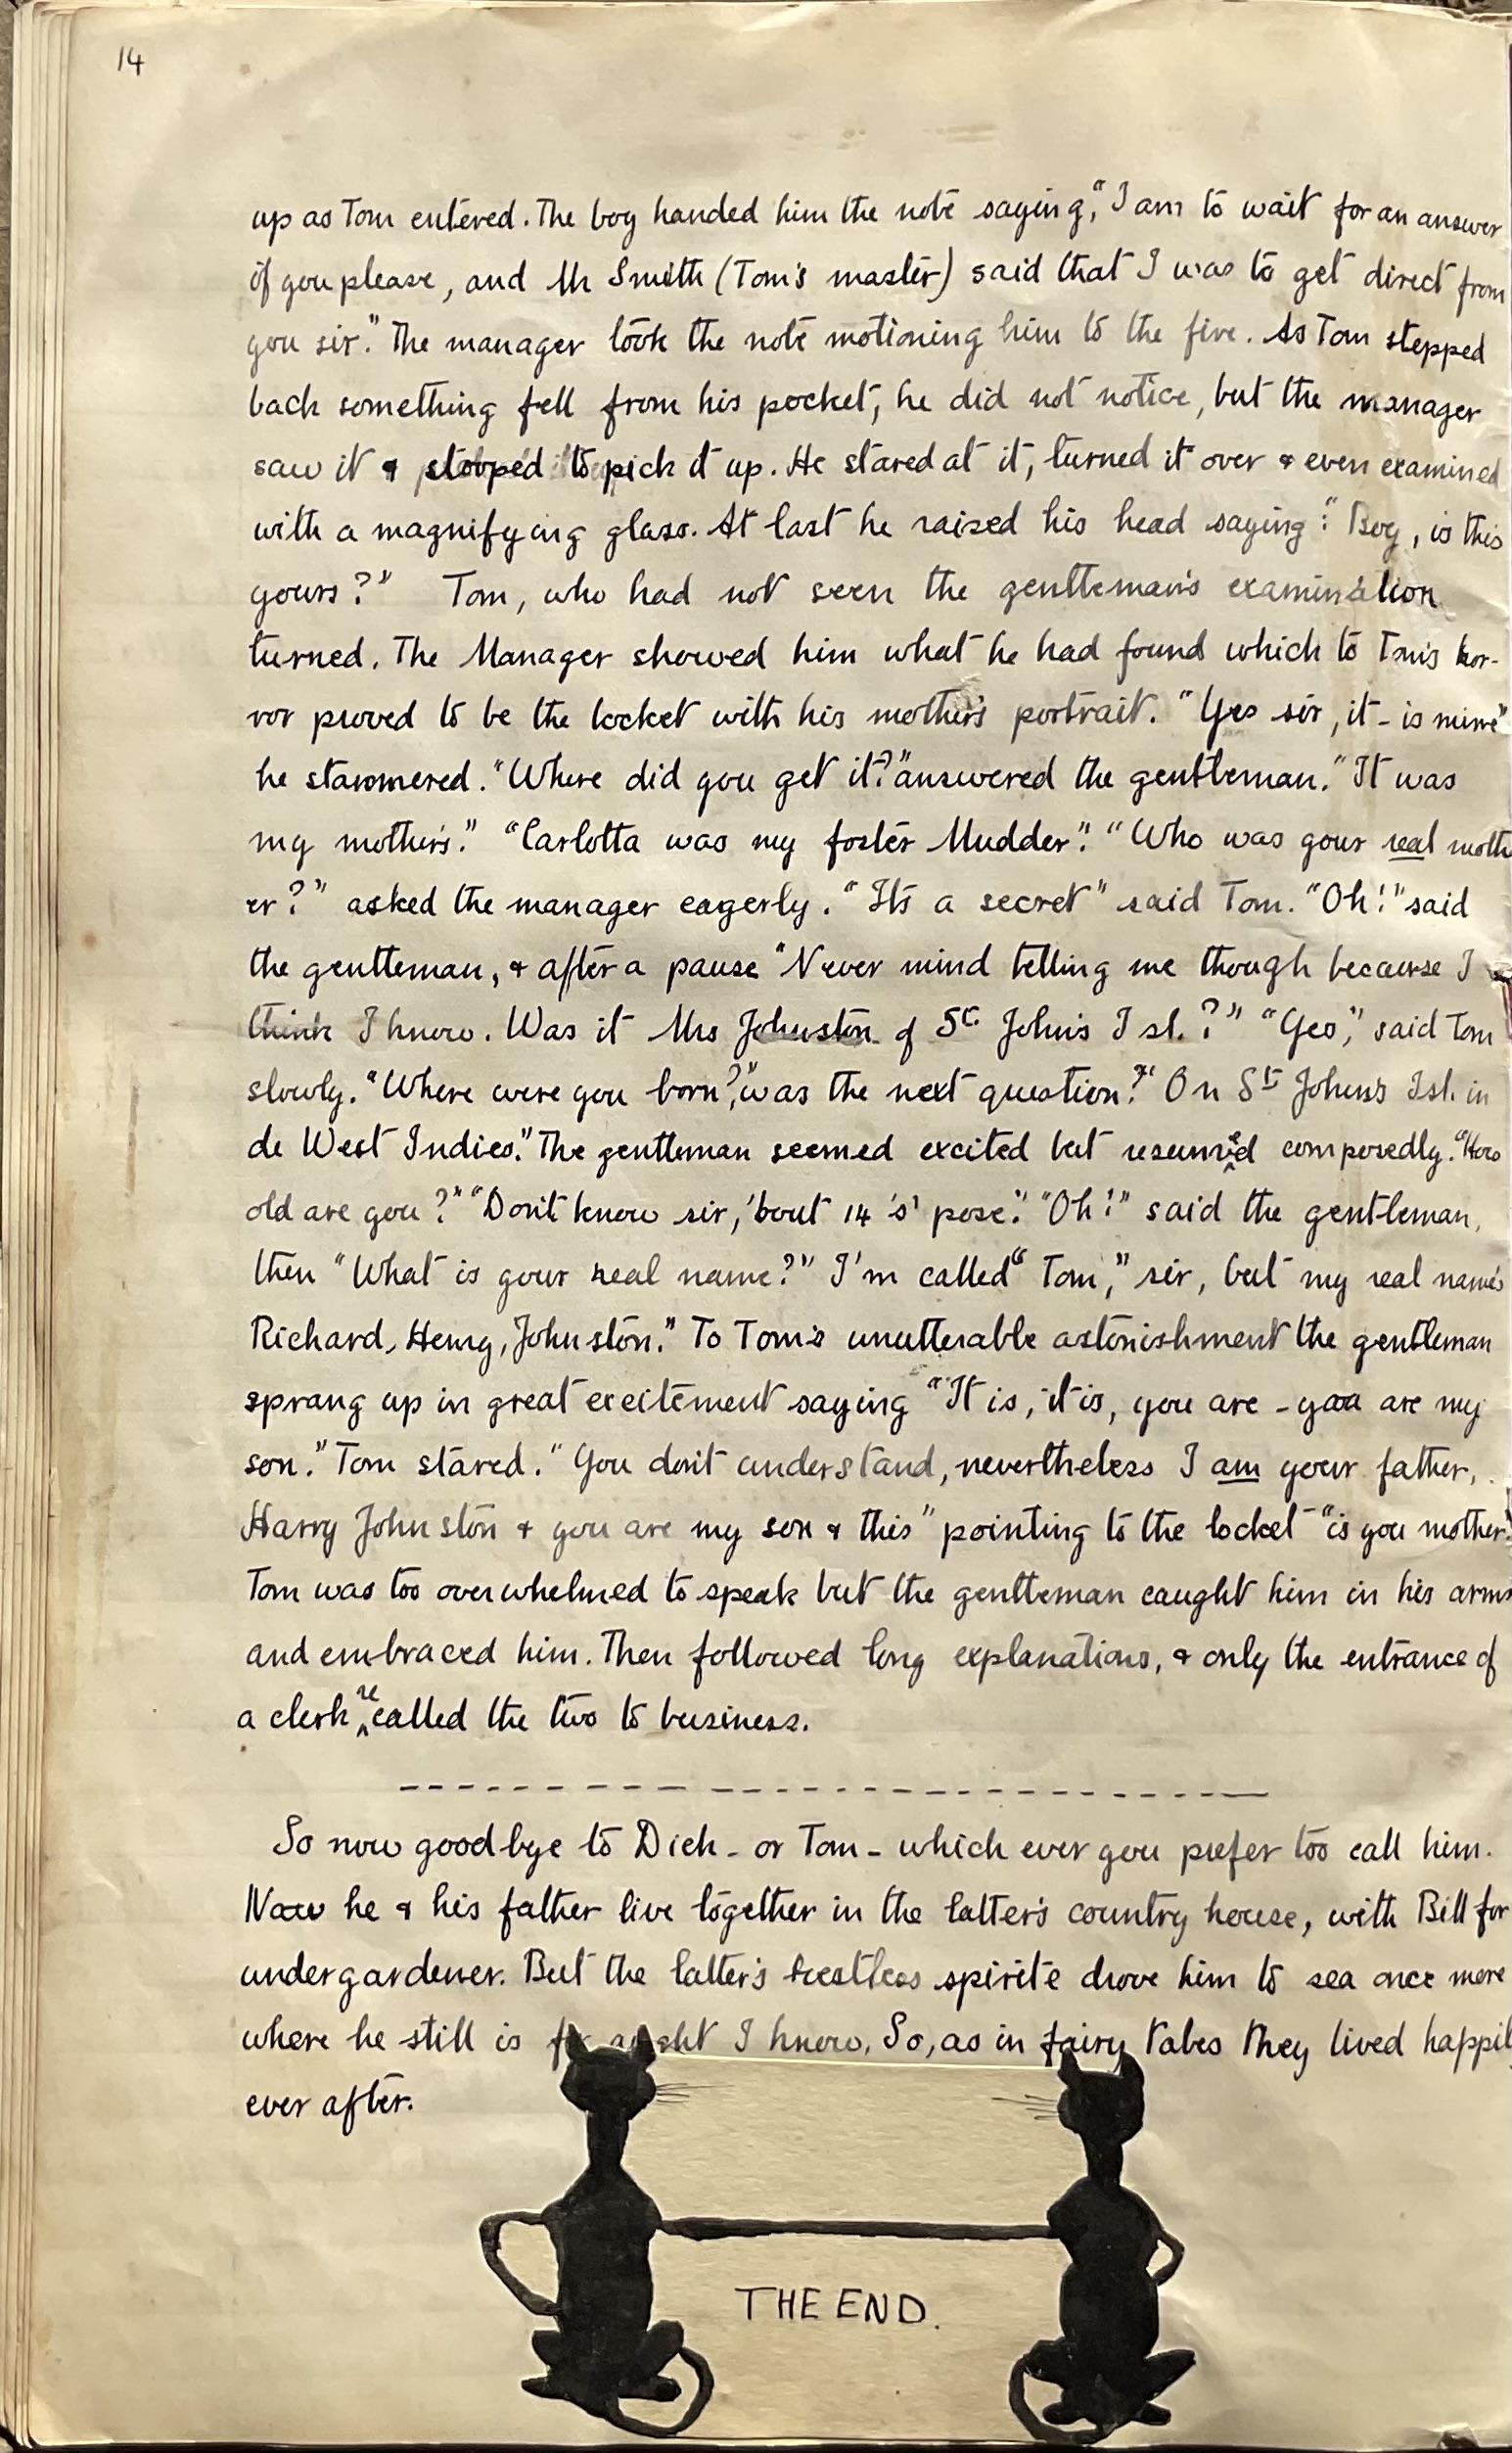 14
up as Tom entered. The boy handed him the note saying, "I am to wait for an answer
if you please, and Mr Smith (Tom's master) said that I was to get direct from
you sir." The manager took the note motioning him to the fire. As Tom stepped
back something fell from his pocket, he did not notice, but the manager
saw it & stooped to pick it up. He stared at it, turned it over & even examined
with a magnifying glass. At last he raised his head saying: "Boy, is this
yours?" Tom, who had not seen the gentleman's examination
turned. The Manager showed him what he had found which to Tom's hor-
ror proved to be the locket with his mother's portrait. "Yes sir, it - is mine"
he stammered. "Where did you get it?" answered the gentleman. "It was
my mother's." "Carlotta was my foster Mudder". "Who was your real moth
er?" asked the manager eagerly. "Its a secret" said Tom. "Oh!" said
the gentleman, & after a pause "Never mind telling me though because I
think I know. Was it Mrs Johnston of St. John's Isl.?" "Yes," said Tom
slowly. "Where were you born?," was the next question?" On St John's Isl. in
de West Indies." The gentleman seemed excited but resumed composedly. "How
old are you?" "Don't know sir, 'bout 14 's' pose". "Oh!" said the gentleman,
then "What is your real name?" I'm called "Tom," sir, but my real name's
Richard, Henry, Johnston." To Tom's unutterable astonishment the gentleman
sprang up in great excitement saying "It is, it is, you are - you are my
son." Tom stared. "You don't understand, nevertheless I am your father,
Harry Johnston & you are my son & this" pointing to the locket - "is you mother."
Tom was too overwhelmed to speak but the gentleman caught him in his arms
and embraced him. Then followed long explanations, & only the entrance of
a clerk recalled the two to business.
So now goodbye to Dick - or Tom - which ever you prefer too call him.
Now he & his father live together in the latter's country house, with Bill for
undergardener. But the latter's restless spirite drove him to sea once more
where he still is for aught I know. So, as in fairy tales they lived happil
ever after.
THE END.